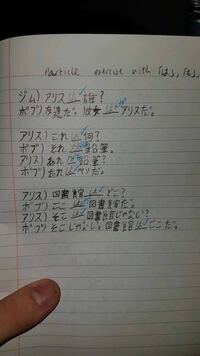 Particle exercise with 「は」, 「も」
ジム) アリスは誰?
ボブ) 友達だ。彼女はアリスだ。
アリス) これは何?
ボブ) それは鉛筆。
アリス) あれは鉛筆?
ボブ) あれはペンだ。
アリス) 図書館はどこ?
ボブ) ここは図書館だ。
アリス) そこは図書館じゃない?
ボブ) そこじゃない。図書館はここだ。